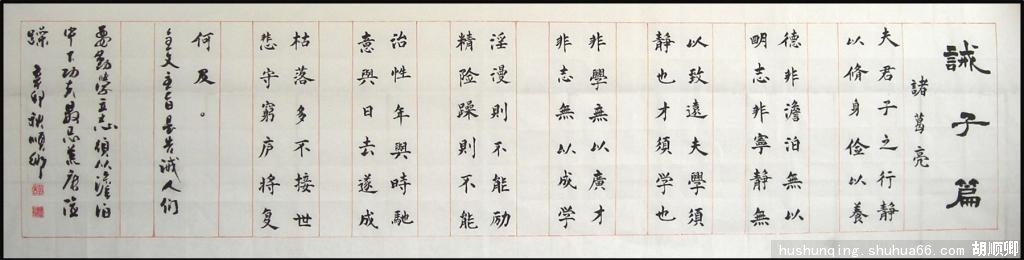 誡子篇
諸葛亮
夫君子之行静
以脩身俭以養
德非澹泊無以
明志非寧静無
以致遠夫學須
静也才須學也
非學無以廣才
非志無以成学
淫漫則不能励
精险躁則不能
治性年與時馳
意與日去遂成
枯落多不接世
悲守窮庐将复
何及。
全文主旨是告诫人们
要勤学立志须从澹泊
中下功夫最忌荒唐险
躁 辛卯秋顺卿
hushunqing.shuhua66.com 胡顺卿